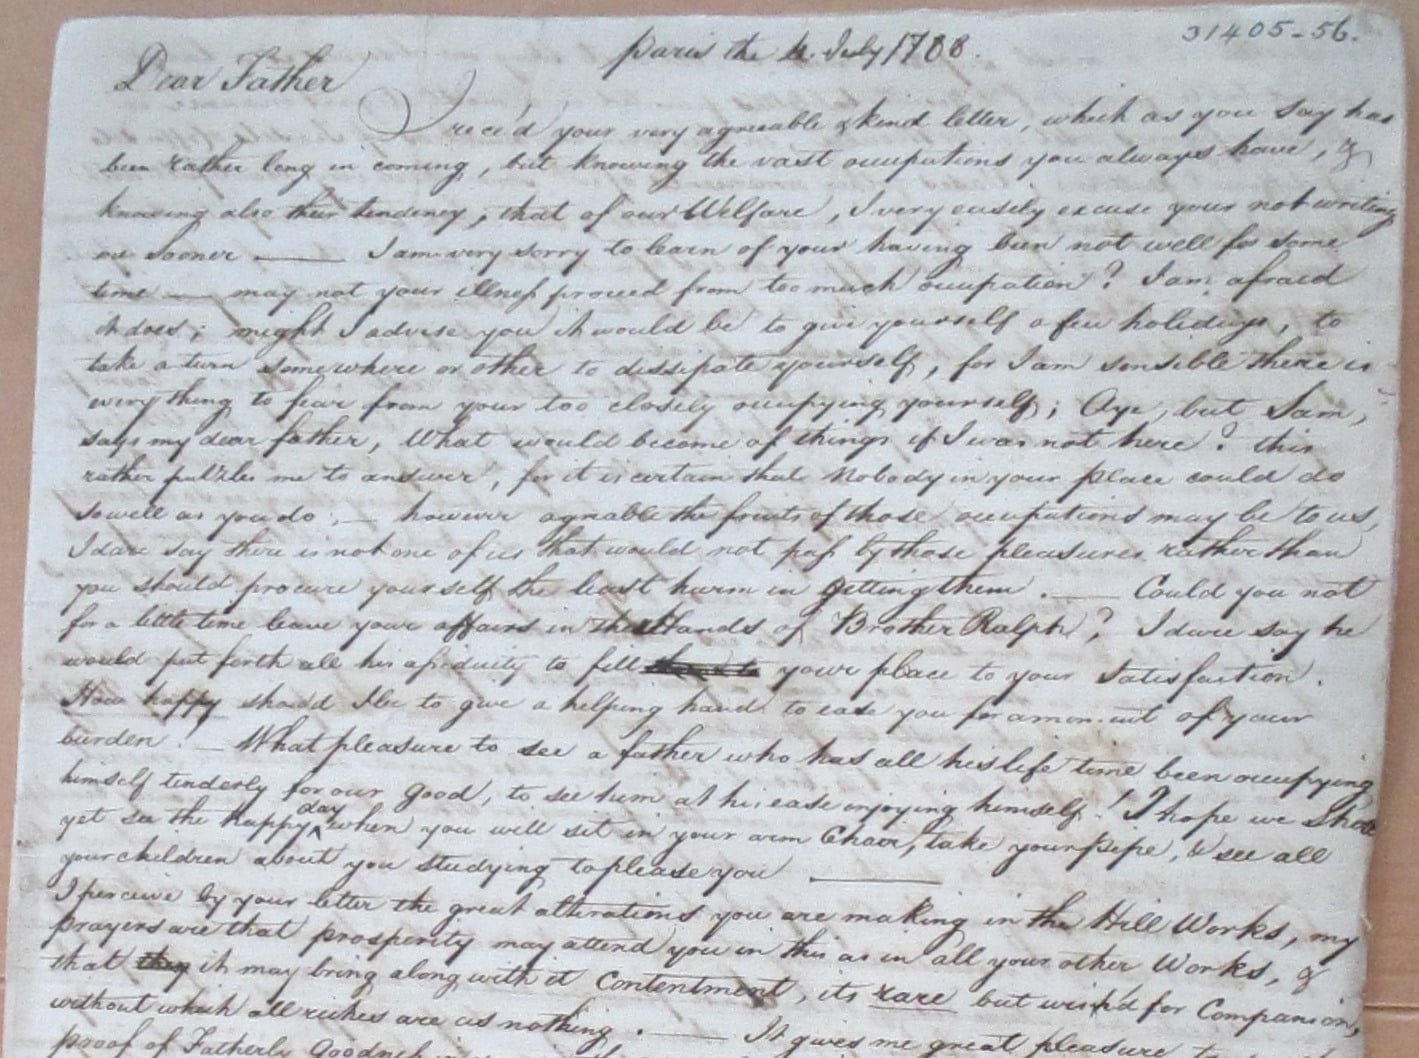 31405-56.
Paris the 4. July 1788.
Dear Father
I rece'd your very agreeable & kind letter, which as you say has
been rather long in coming, but knowing the vast occupations you always have, &
knowing also their tendency, that of our Welfare, I very easily excuse your not writing
me sooner —— I am very sorry to learn of your having been not well for some
time — may not your illness proceed from too much occupation? I am afraid
it does; might I advise you it would be to give yourself a few holidays, to
take a turn somewhere or other to dissipate yourself, for I am sensible there is
every thing to fear from your too closely occupying yourself; Aye, but Sam,
says my dear father, What would become of things if I was not here? this
rather puzzles me to answer, for it is certain that Nobody in your place could do
so well as you do; — however agreable the fruits of those occupations may be to us,
I dare say there is not one of us that would not pass by those pleasures rather than
you should procure yourself the least harm in getting them. —— Could you not
for a little time leave your affairs in the Hands of Brother Ralph? I dare say he
would put forth all his assiduity to fill your place to your Satisfaction.
How happy should I be to give a helping hand to ease you for a moment of your
burden! — What pleasure to see a father who has all his life time been occupying
himself tenderly for our good, to see him at his ease enjoying himself! I hope we shall
yet see the happy day when you will set in your arm Chair, take your pipe, & see all
your children about you studying to please you ——
I perceive by your letter the great alterations you are making in the Hill Works, my
prayers are that prosperity may attend you in this as in all your other Works, &
that they it may bring along with it Contentment, its rare but wish'd for Companion,
without which all riches are as nothing. —— It gives me great pleasure to
proof of Fatherly Goodness in